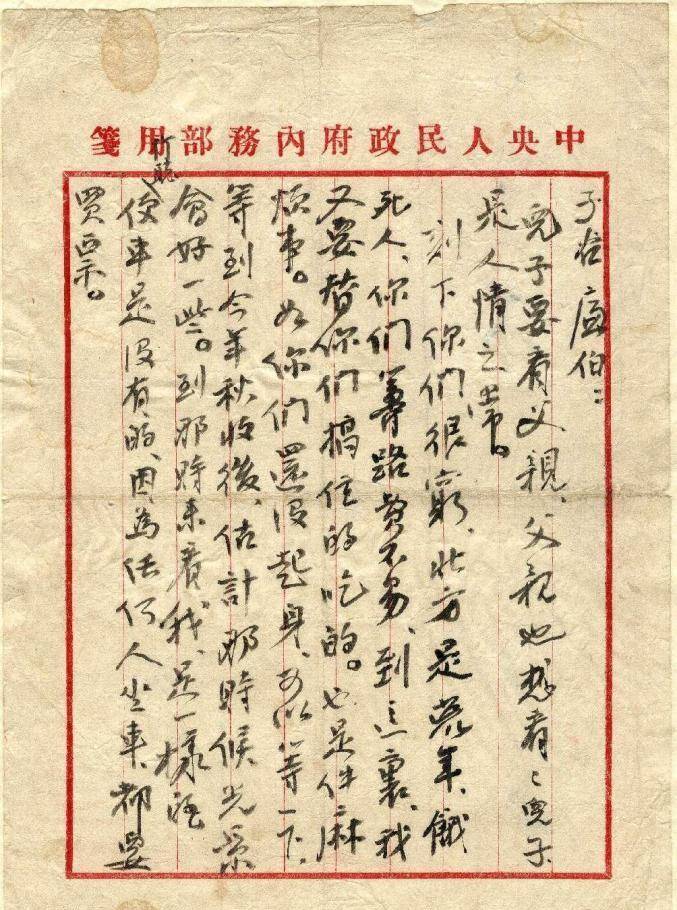 中央人民政府內務部用箋
子谷 廉伯：
兒子要看父親、父親也想看ミ兒子
是人情之常。
刻下你们很窮、北方是荒年、餓
死人、你们籌路費不易、到這裏、我
又要替你们搞住的吃的。也是件麻
煩事。如你们還沒起身、可以等一下、
等到今年秋收後、估計那時候光景
會好一些。到那時來看我、是一樣的
使車是沒有的、因為任何人坐車、都要
買票。